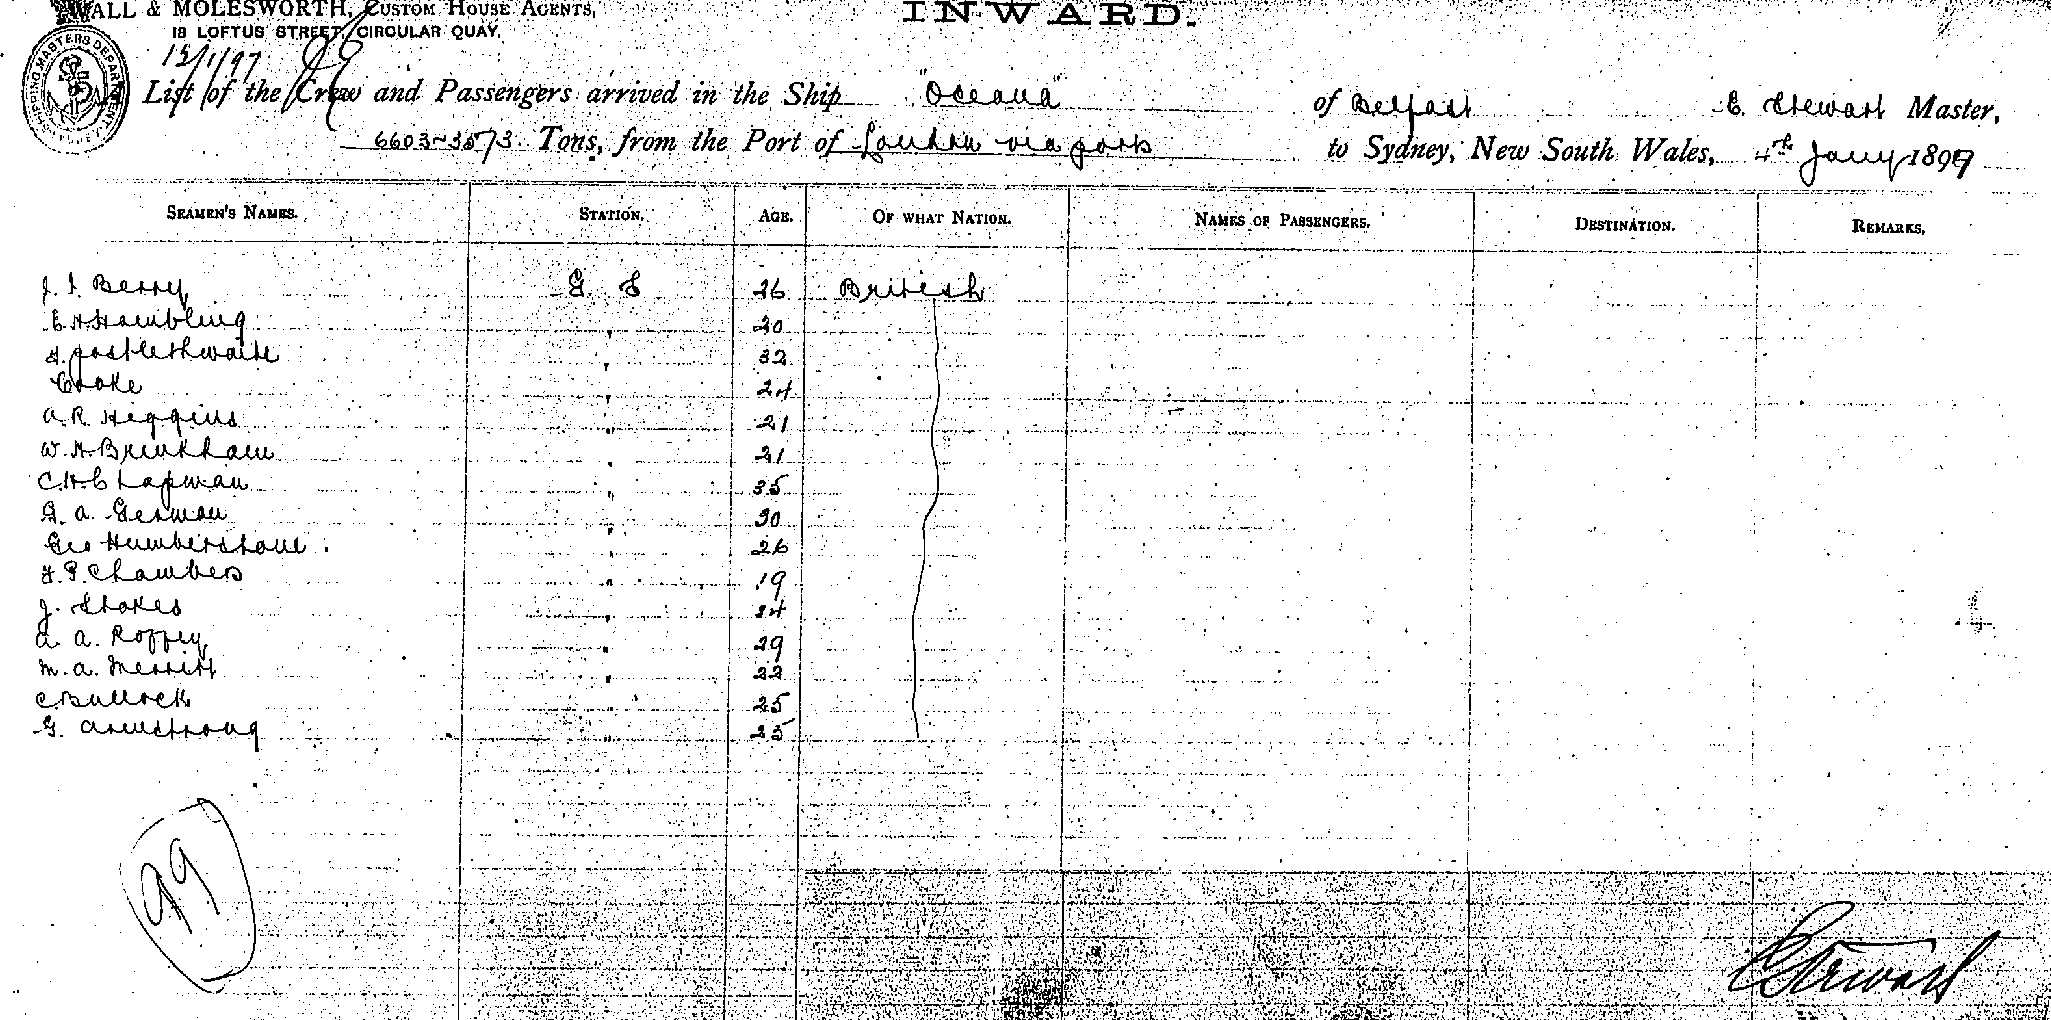 WALL & MOLESWORTH, CUSTOM HOUSE AGENTS,
18 LOFTUS STREET, CIRCULAR QUAY.
INWARD.
12/1/97
List of the Crew and Passengers arrived in the Ship "Oceana" of Belfast E. Stewart Master,
6603~3573 Tons, from the Port of London via ports to Sydney, New South Wales, 4th Jany 1897
SEAMEN'S NAMES. STATION. AGE. OF WHAT NATION. NAMES OF PASSENGERS. DESTINATION. REMARKS.
J. I. Berry G S 26 British
E H Hambling " 20
H. Postlethwaite " 32
Cooke " 24
A. R. Higgins " 21
W. H Brinkham " 21
C. H. Chapman " 35
G. A. German " 30
Geo Humberstone . " 26
F. P. Chambers " 19
J. Stokes " 24
A A. Roffey " 29
M. A. Merritt " 22
C Bullock " 25
G. Armstrong " 25
99
E Stewart